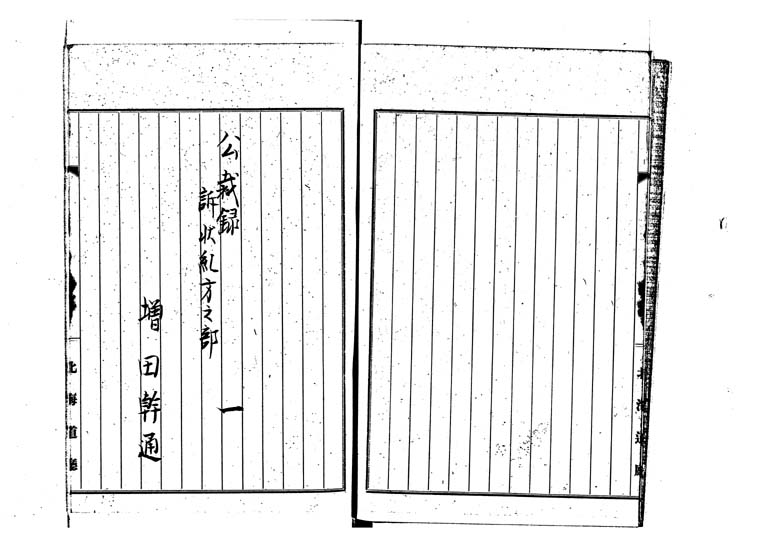 公裁録
訴状糺方之部
一
増田幹通
北海道廳
北海道廳